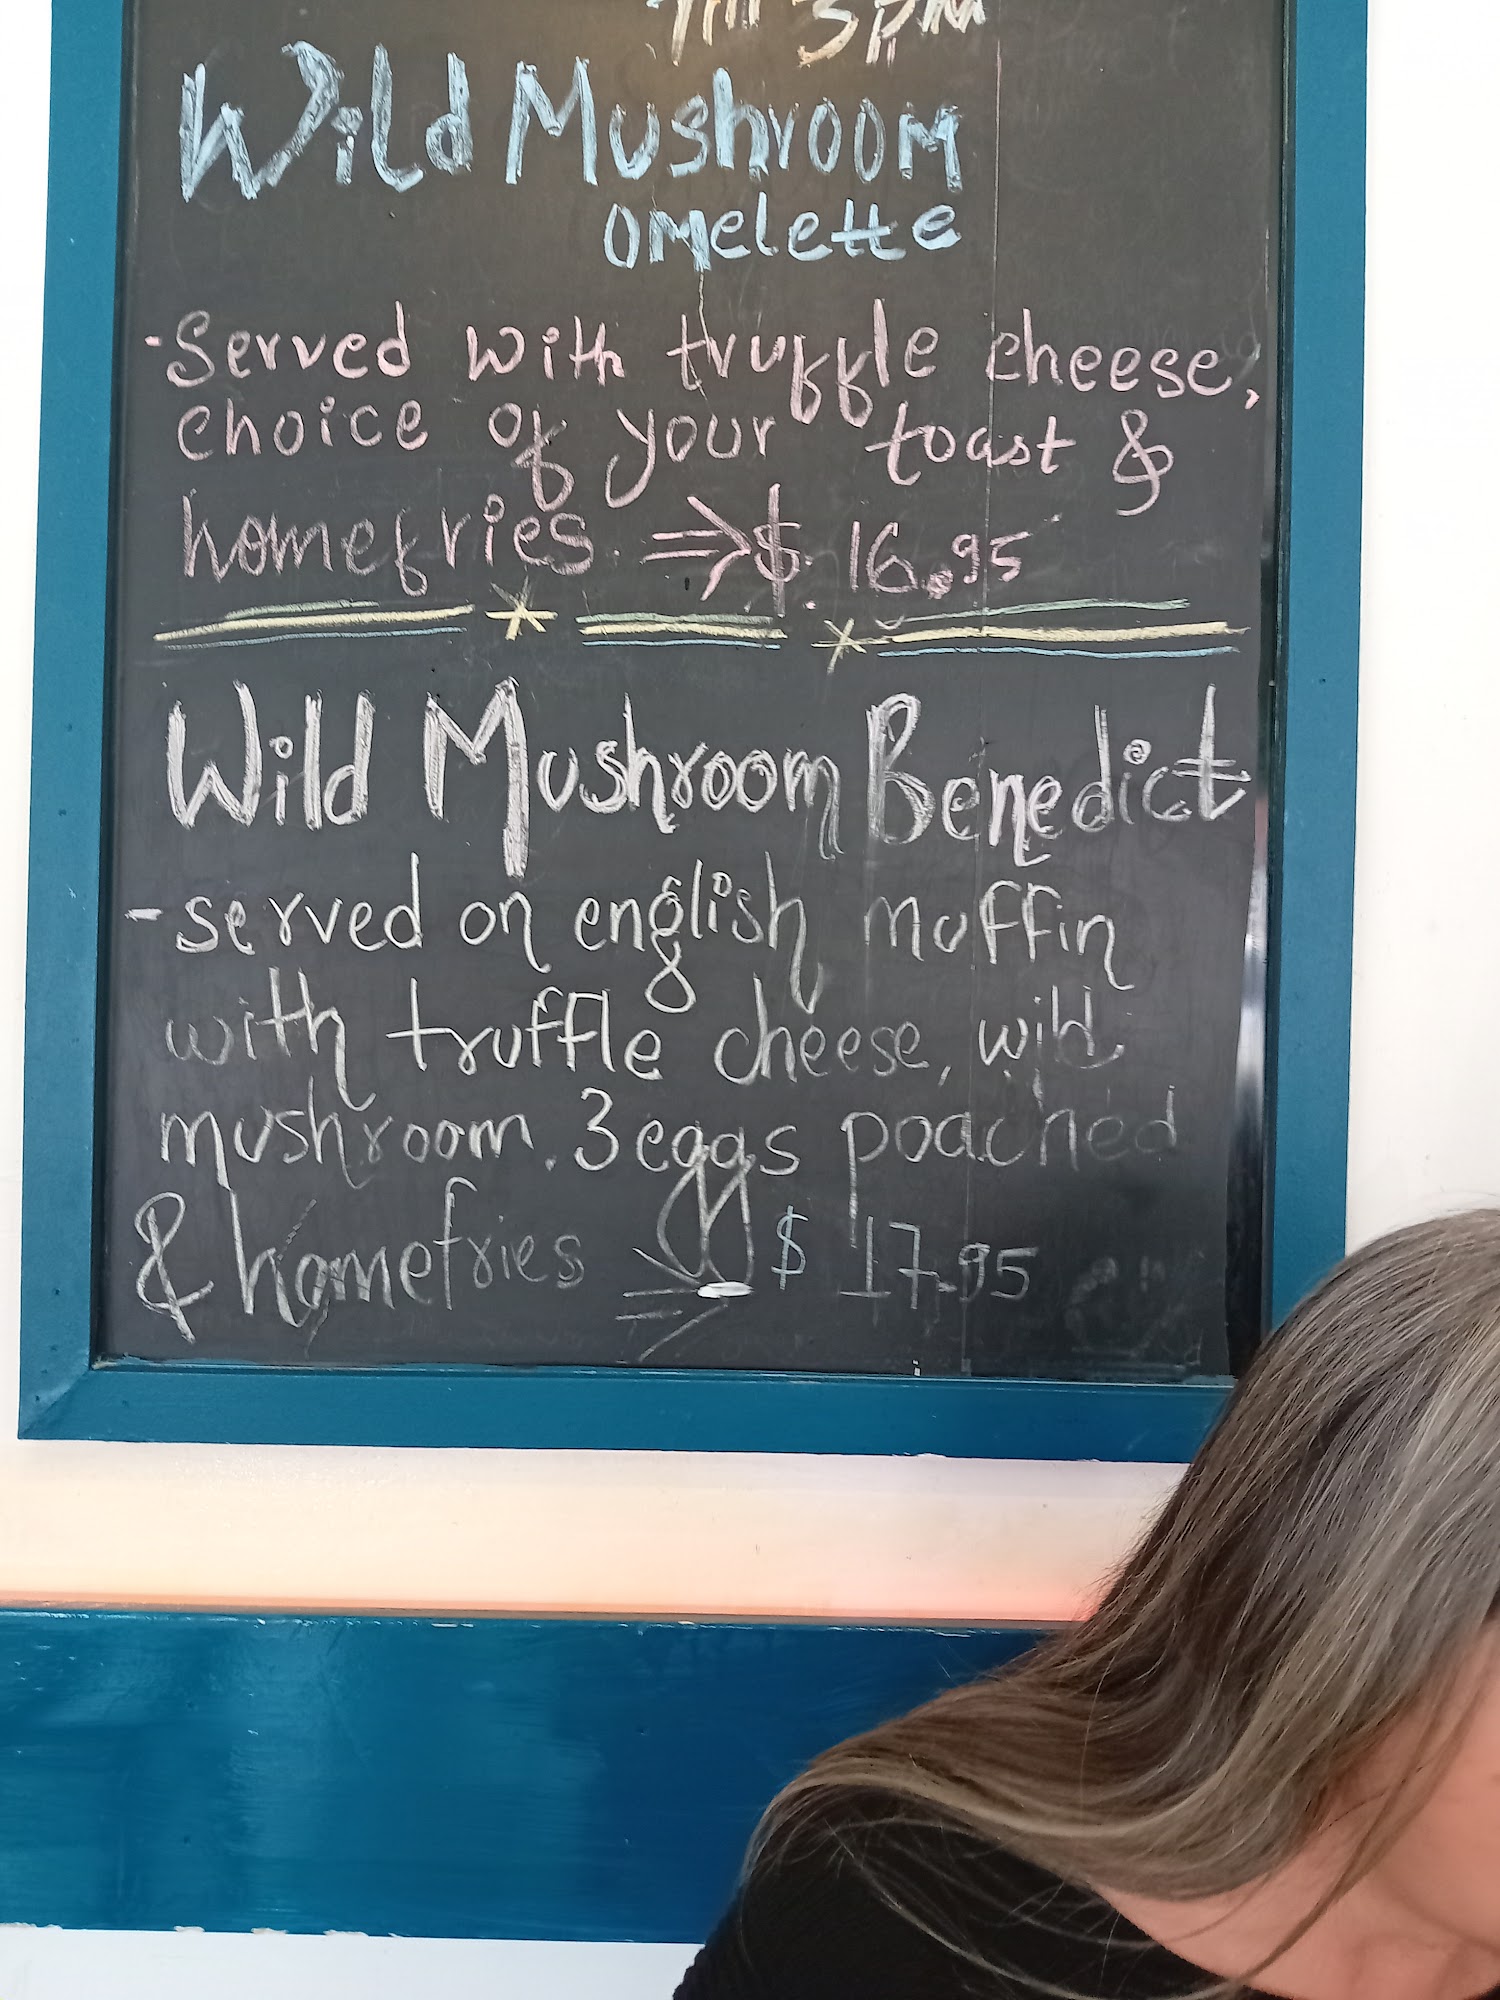 Till 3PM
Wild Mushroom
omelette
-Served with truffle cheese,
choice of your toast &
homefries. ⇒ $. 16.95
Wild Mushroom Benedict
-served on english muffin
with truffle cheese, wild
mushroom. 3 eggs poached
& homefries ⇒ $ 17.95